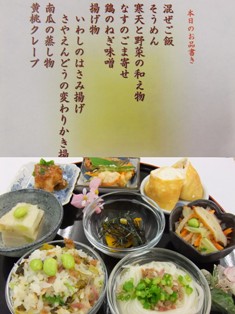 本日のお品書き
混ぜご飯
そうめん
寒天と野菜の和え物
なすのごま寄せ
鶏のねぎ味噌
揚げ物
いわしのはさみ揚げ
さやえんどうの変わりかき揚
南瓜の蒸し物
黄桃クレープ